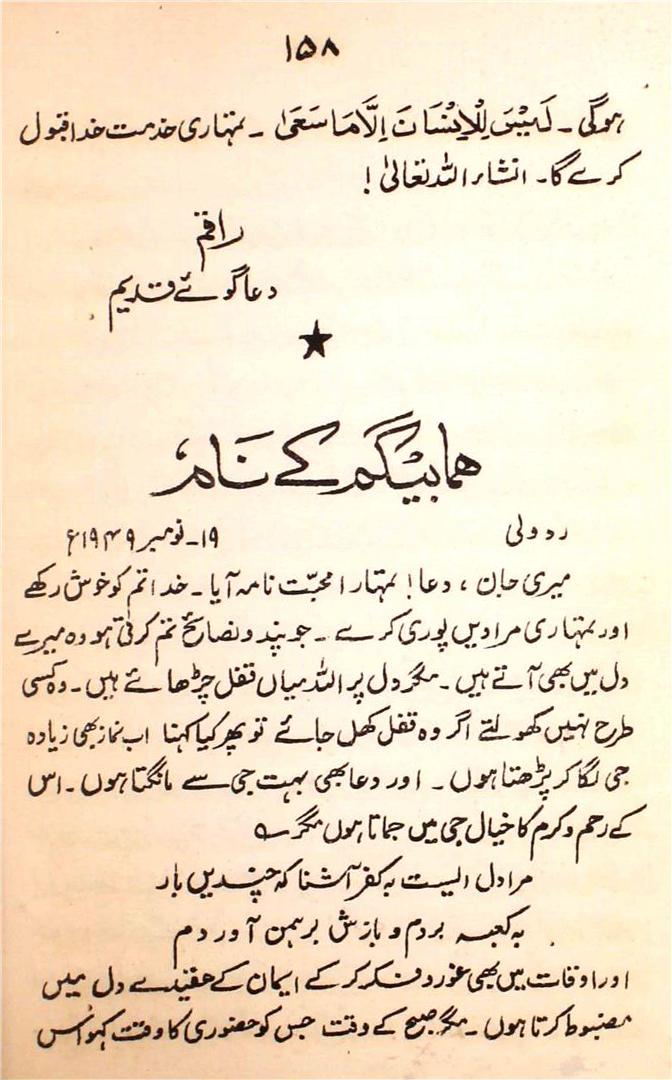 ۱۵۸
ہوگی۔ لَیْسَ لِلْاِنْسَانَ اِلَّا مَا سَعَیٰ ۔ تمہاری خدمت خدا قبول
کرے گا۔ انشاء اللہ تعالیٰ!
راقم
دعاگوئے قدیم
★
ہما بیگم کے نام
ردولی ۱۹۔ نومبر ۱۹۴۹ء
میری جان، دعا! تمہارا محبّت نامہ آیا۔ خدا تم کو خوش رکھے
اور تمہاری مرادیں پوری کرے۔ جو پند و نصائح تم کرتی ہو وہ میرے
دل میں بھی آتے ہیں۔ مگر دل پر اللہ میاں قفل چڑھائے ہیں۔ وہ کسی
طرح نہیں کھولتے اگر وہ قفل کھل جائے تو پھر کیا کہنا اب نماز بھی زیادہ
جی لگا کر پڑھتا ہوں۔ اور دعا بھی بہت جی سے مانگتا ہوں۔ اس
کے رحم و کرم کا خیال جی میں جماتا ہوں مگر ؎
مرا دل ایست بہ کفر آشنا کہ چندیں بار
بہ کعبہ بردم و بازش برہمن آوردم
اور اوقات میں بھی غور و فکر کر کے ایمان کے عقیدے دل میں
مضبوط کرتا ہوں۔ مگر صبح کے وقت جس کو حضوری کا وقت کہو اُس